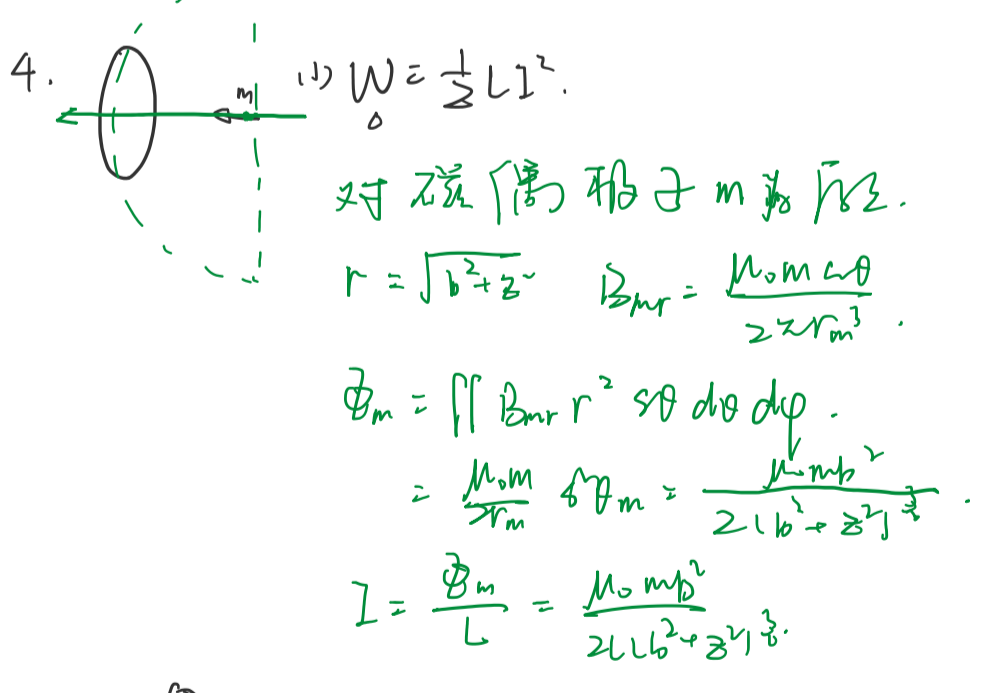 4. m (1) W = 1/2 L I².
对磁偶极子 m 为原点.
r = √(b²+z²) B_mr = μ₀m cosθ / 2πr_m³ .
Φ_m = ∬ B_mr r² sθ dθ dφ .
= μ₀m / 2r_m s²θ_m = μ₀mb² / 2(b²+z²)^(3/2) .
I = Φ_m / L = μ₀mb² / 2L(b²+z²)^(3/2).